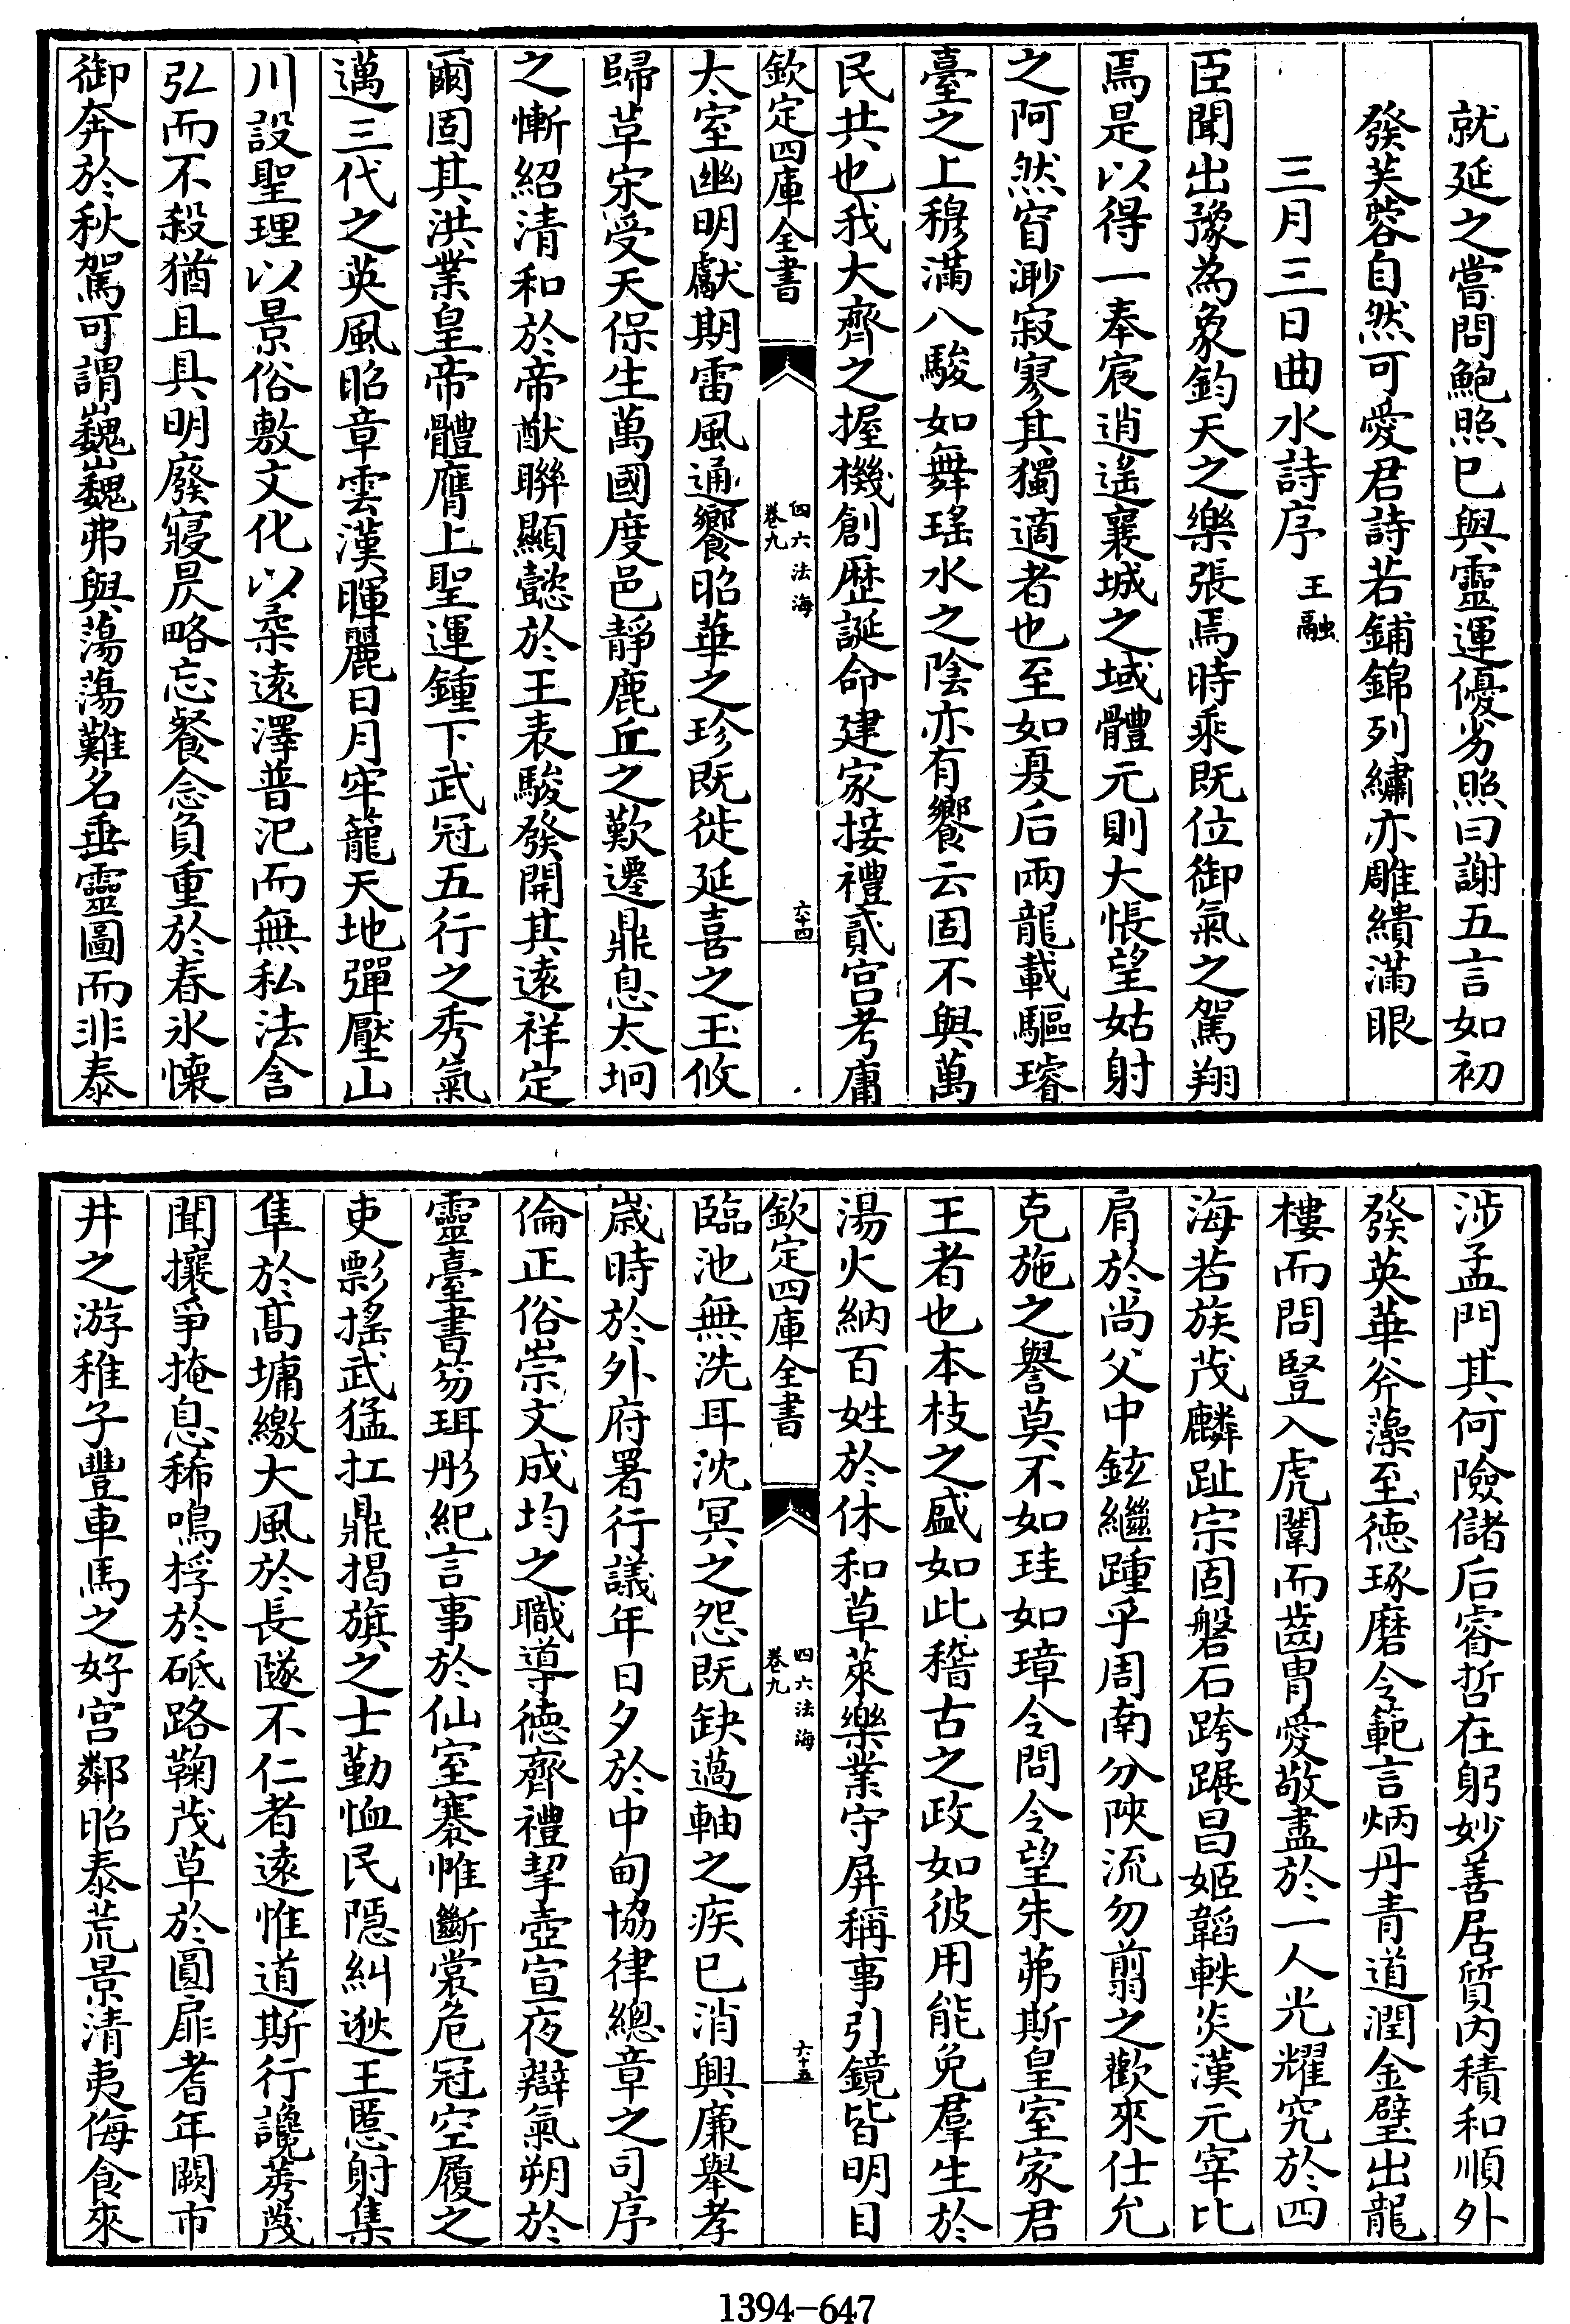 就延之嘗問鮑照已與靈運優劣照曰謝五言如初
發芙蓉自然可愛君詩若鋪錦列繡亦雕繢滿眼
三月三日曲水詩序 王融
臣聞出豫為象鈞天之樂張焉時乘既位御氣之駕翔
焉是以得一奉宸逍遙襄城之域體元則大悵望姑射
之阿然窅渺寂寥其獨適者也至如夏后兩龍載驅璿
臺之上穆滿八駿如舞瑤水之陰亦有饗云固不與萬
民共也我大齊之握機創歷誕命建家接禮貳宮考庸
欽定四庫全書 四六法海 卷九 六十四
太室幽明獻期雷風通饗昭華之珍既徙延喜之玉攸
歸草宋受天保生萬國度邑靜鹿丘之歎遷鼎息太坰
之慚紹清和於帝猷聯顯懿於王表駿發開其遠祥定
爾固其洪業皇帝體膺上聖運鍾下武冠五行之秀氣
邁三代之英風昭章雲漢暉麗日月牢籠天地彈壓山
川設聖理以景俗敷文化以桑遠澤普汜而無私法含
弘而不殺猶且具明廢寢昃略忘餐念負重於春氷懷
御奔於秋駕可謂巍巍弗與蕩蕩難名垂靈圖而非泰
涉孟門其何險儲后睿哲在躬妙善居質內積和順外
發英華斧藻至德琢磨令範言炳丹青道潤金璧出龍
樓而問豎入虎闈而齒胄愛敬盡於一人光耀究於四
海若族茂麟趾宗固磐石跨蹍昌姬韜軼炎漢元宰比
肩於尚父中鉉繼踵乎周南分陝流勿翦之歡來仕允
克施之譽莫不如珪如璋令問令望朱茀斯皇室家君
王者也本枝之盛如此稽古之政如彼用能免羣生於
湯火納百姓於休和草萊樂業守屏稱事引鏡皆明目
欽定四庫全書 四六法海 卷九 六十五
臨池無洗耳沈冥之怨既缺薖軸之疾已消興廉舉孝
歲時於外府署行議年日夕於中甸協律總章之司序
倫正俗崇文成均之職導德齊禮挈壺宣夜辯氣朔於
靈臺書笏珥彤紀言事於仙室褰帷斷裳危冠空履之
吏彯搖武猛扛鼎揭旗之士勤恤民隱糾逖王慝射集
隼於高墉繳大風於長隧不仁者遠惟道斯行讒莠蔑
聞攘爭掩息稀鳴桴於砥路鞠茂草於圓扉耆年闕市
井之游稚子豐車馬之好宮鄰昭泰荒景清夷侮食來
1394-647